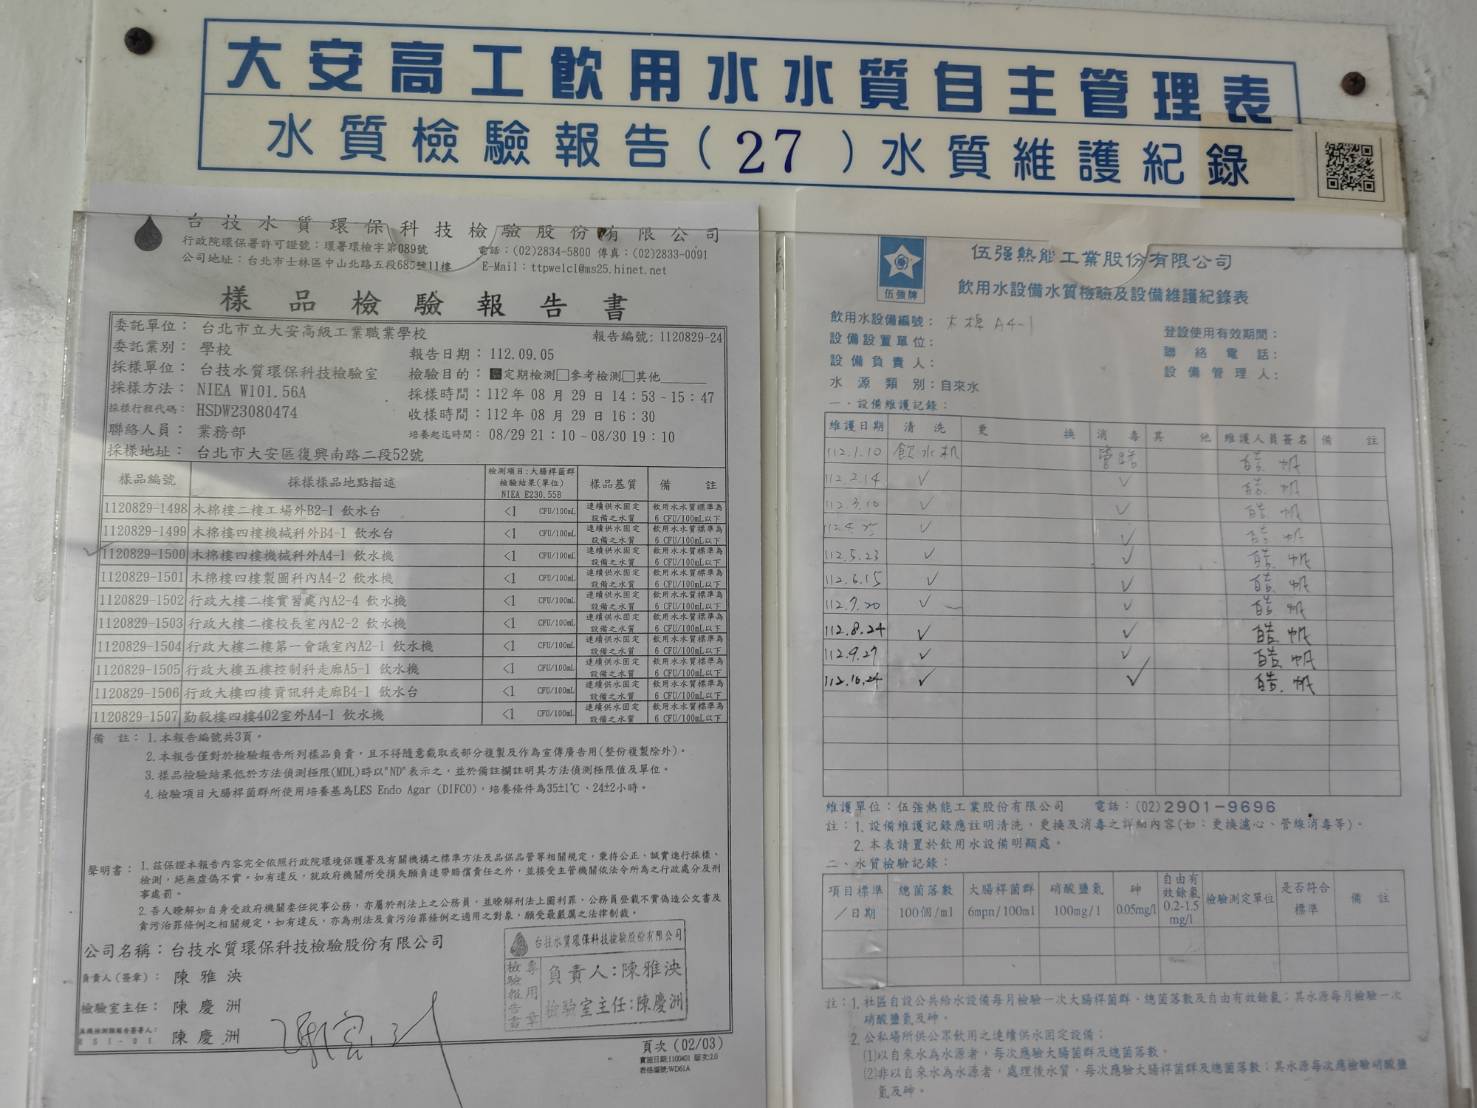 大安高工飲用水水質自主管理表
水質檢驗報告(27)水質維護紀錄
台技水質環保科技檢驗股份有限公司
行政院環保署許可證號：環署環檢字第089號
電話：(02)2834-5800 傳真：(02)2833-0091
公司地址：台北市士林區中山北路五段685號11樓
E-Mail：ttpwelcl@ms25.hinet.net
樣品檢驗報告書
委託單位： 台北市立大安高級工業職業學校
報告編號: 1120829-24
委託業別： 學校
報告日期：112.09.05
採樣單位： 台技水質環保科技檢驗室
檢驗目的：■定期檢測□參考檢測□其他
採樣方法： NIEA W101.56A
採樣時間：112年 08 月 29 日 14：53-15：47
採樣行程代碼： HSDW23080474
收樣時間：112年 08 月 29 日 16：30
聯絡人員： 業務部
培養起迄時間： 08/29 21：10-08/30 19：10
採樣地址： 台北市大安區復興南路二段52號
樣品編號 採樣樣品地點描述 檢測項目:大腸桿菌群 檢驗結果(單位) NIEA E230.55B 樣品基質 備註
1120829-1498 木棉樓二樓工場外B2-1 飲水台 <1 CFU/100mL 連續供水固定設備之水質 飲用水水質標準為6 CFU/100mL以下
1120829-1499 木棉樓四樓機械科外B4-1 飲水台 <1 CFU/100mL 連續供水固定設備之水質 飲用水水質標準為6 CFU/100mL以下
1120829-1500 木棉樓四樓機械科外A4-1 飲水機 <1 CFU/100mL 連續供水固定設備之水質 飲用水水質標準為6 CFU/100mL以下
1120829-1501 木棉樓四樓製圖科內A4-2 飲水機 <1 CFU/100mL 連續供水固定設備之水質 飲用水水質標準為6 CFU/100mL以下
1120829-1502 行政大樓二樓實習處內A2-4 飲水機 <1 CFU/100mL 連續供水固定設備之水質 飲用水水質標準為6 CFU/100mL以下
1120829-1503 行政大樓二樓校長室內A2-2 飲水機 <1 CFU/100mL 連續供水固定設備之水質 飲用水水質標準為6 CFU/100mL以下
1120829-1504 行政大樓二樓第一會議室內A2-1 飲水機 <1 CFU/100mL 連續供水固定設備之水質 飲用水水質標準為6 CFU/100mL以下
1120829-1505 行政大樓五樓控制科走廊A5-1 飲水機 <1 CFU/100mL 連續供水固定設備之水質 飲用水水質標準為6 CFU/100mL以下
1120829-1506 行政大樓四樓資訊科走廊B4-1 飲水台 <1 CFU/100mL 連續供水固定設備之水質 飲用水水質標準為6 CFU/100mL以下
1120829-1507 勤毅樓四樓402室外A4-1 飲水機 <1 CFU/100mL 連續供水固定設備之水質 飲用水水質標準為6 CFU/100mL以下
備 註：1.本報告編號共3頁。
2.本報告僅對於檢驗報告所列樣品負責，且不得隨意截取或部分複製及作為宣傳廣告用(整份複製除外)。
3.樣品檢驗結果低於方法偵測極限(MDL)時以"ND"表示之，並於備註欄註明其方法偵測極限值及單位。
4.檢驗項目大腸桿菌群所使用培養基為LES Endo Agar (DIFCO)，培養條件為35±1℃、24±2小時。
聲明書：1.茲保證本報告內容完全依照行政院環境保護署及有關機構之標準方法及品保品管等相關規定，秉持公正、誠實進行採樣、
檢測，絕無虛偽不實。如有違反，就政府機關所受損失願負連帶賠償責任之外，並接受主管機關依法令所為之行政處分及刑
事處罰。
2.吾人瞭解如自身受政府機關委任從事公務，亦屬於刑法上之公務員，並瞭解刑法上圖利罪、公務員登載不實偽造公文書及
貪污治罪條例之相關規定，如有違反，亦為刑法及貪污治罪條例之適用之對象，願受最嚴厲之法律制裁。
公司名稱：台技水質環保科技檢驗股份有限公司
負責人(簽章)： 陳雅泱
檢驗室主任： 陳慶洲
陳慶洲
台技水質環保科技檢驗股份有限公司
檢驗報告書專用章
負責人:陳雅泱
檢驗室主任:陳慶洲
頁次 (02/03)
實施日期:1100401 版次:2.0
表格編號:WD61A
伍強牌
伍強熱能工業股份有限公司
飲用水設備水質檢驗及設備維護紀錄表
飲用水設備編號：木棉 A4-1
登設使用有效期間：
設備設置單位：
聯絡電話：
設備負責人：
設備管理人：
水源類別：自來水
一、設備維護記錄：
維護日期 清洗 更換 消毒 其他 維護人員簽名 備註
112.1.10 飲水机 管路
112.2.14 ✓ ✓
112.3.10 ✓ ✓
112.4.25 ✓ ✓
112.5.23 ✓ ✓
112.6.15 ✓ ✓
112.7.20 ✓ ✓
112.8.24 ✓ ✓
112.9.27 ✓ ✓
112.10.24 ✓ ✓
維護單位：伍強熱能工業股份有限公司 電話：(02)2901-9696
註：1.設備維護記錄應註明清洗，更換及消毒之詳細內容(如：更換濾心、管線消毒等)。
2.本表請置於飲用水設備明顯處。
二、水質檢驗記錄：
項目標準／日期 總菌落數 100個/ml 大腸桿菌群 6mpn/100ml 硝酸鹽氮 100mg/l 砷 0.05mg/l 自由有效餘氯 0.2-1.5 mg/l 檢驗測定單位 是否符合標準 備註
註：1.社區自設公共給水設備每月檢驗一次大腸桿菌群、總菌落數及自由有效餘氯；其水源每月檢驗一次
硝酸鹽氮及砷。
2.公私場所供公眾飲用之連續供水固定設備：
(1)以自來水為水源者，每次應驗大腸菌群及總菌落數。
(2)非以自來水為水源者，處理後水質，每次應驗大腸桿菌群及總菌落數；其水源每次應檢驗硝酸鹽
氮及砷。